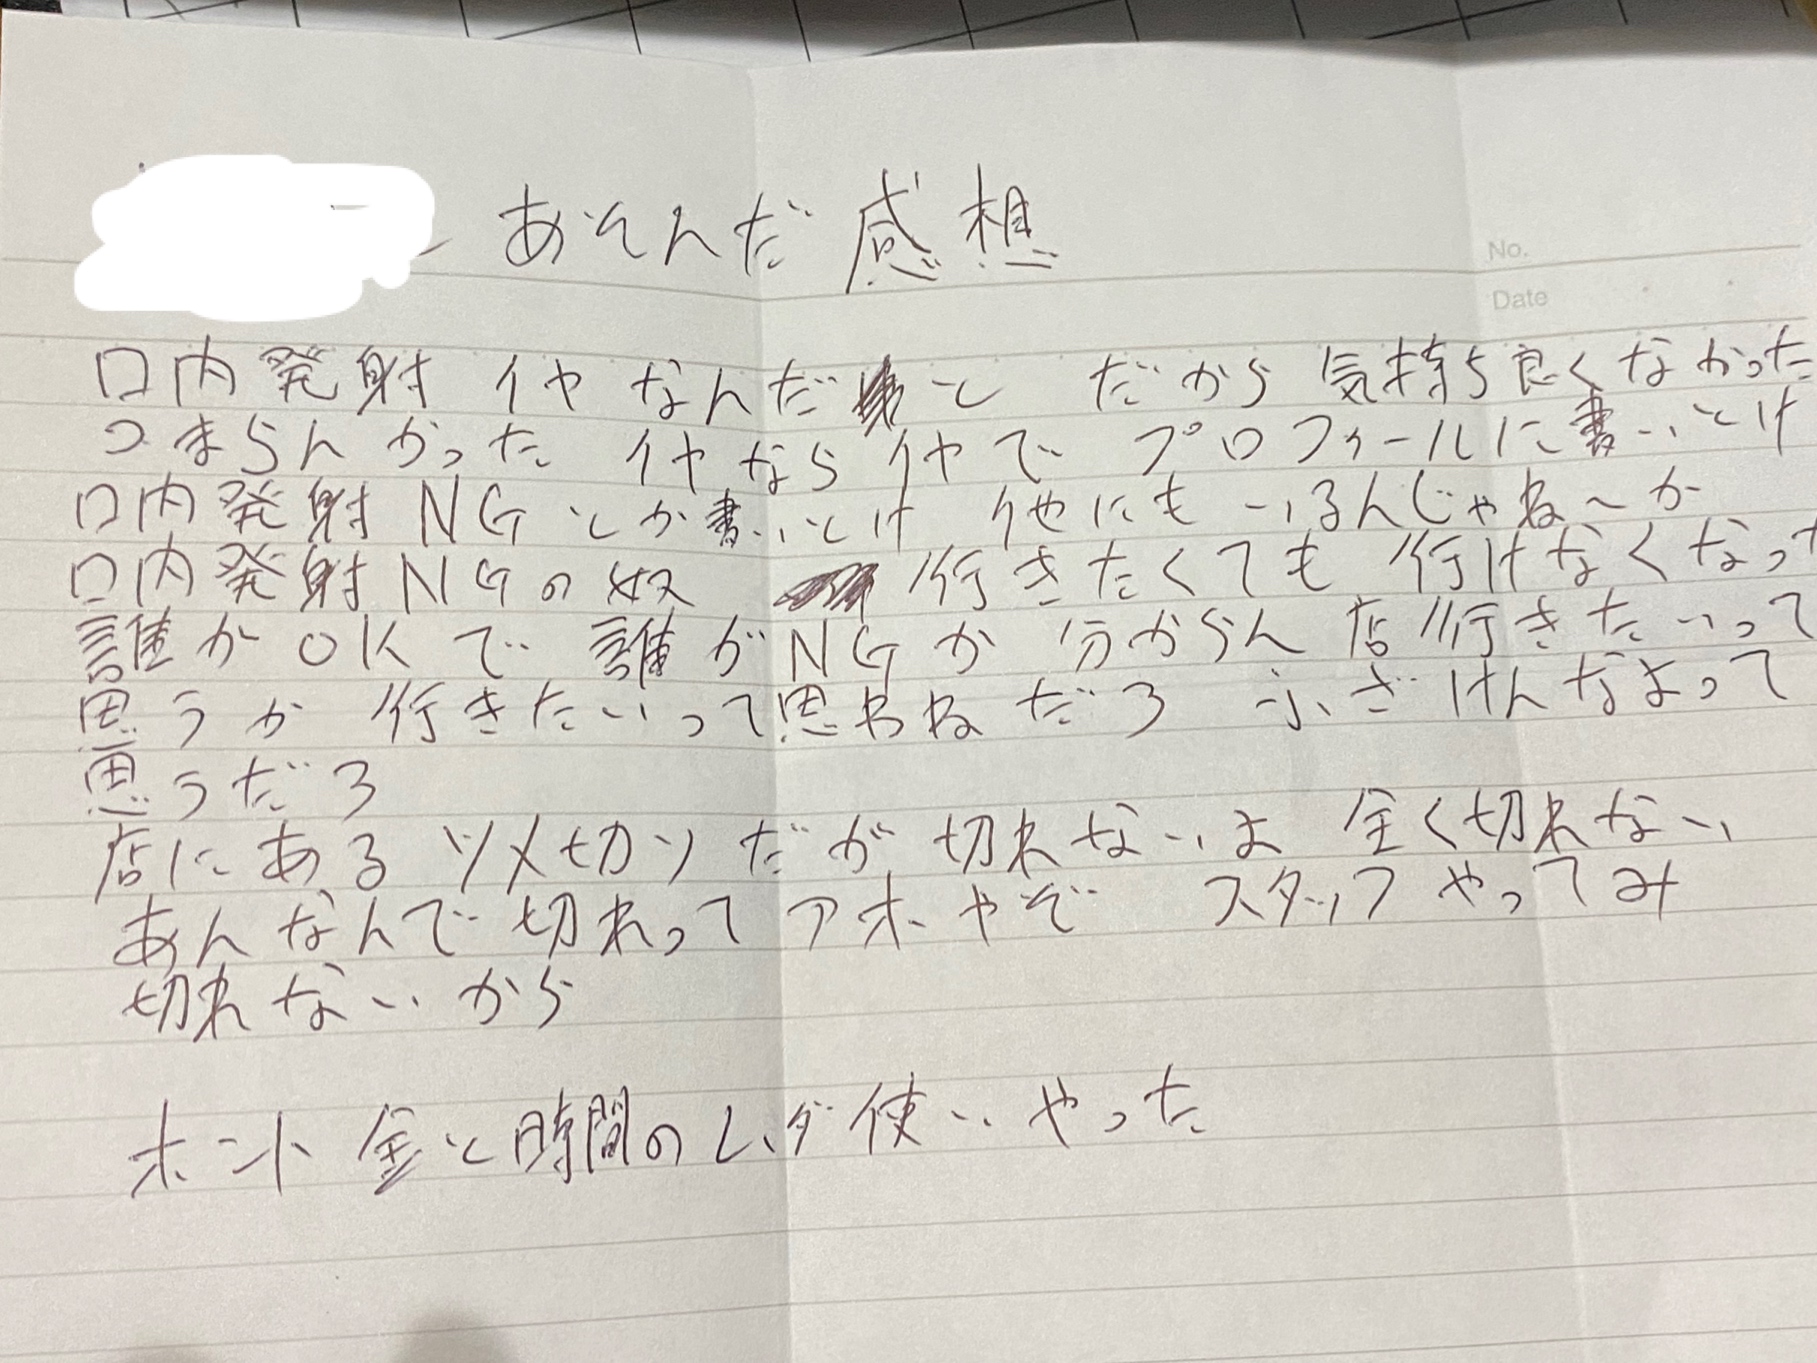 あそんだ感想
No.
Date
口内発射 イヤなんだと だから 気持ち良くなかった
つまらんかった イヤならイヤで プロフィールに書いとけ
口内発射NGとか書いとけ 他にもいるんじゃね〜か
口内発射NGの奴 行きたくても行けなくなっ
誰がOKで 誰がNGか 分からん 店行きたいって
思うか 行きたいって思わねだろ ふざけんなよって
思うだろ
店にある ツメ切りだが 切れないよ 全く切れない
あんなんで切れって アホやぞ スタッフやってみ
切れないから
ホント金と時間のムダ使いやった